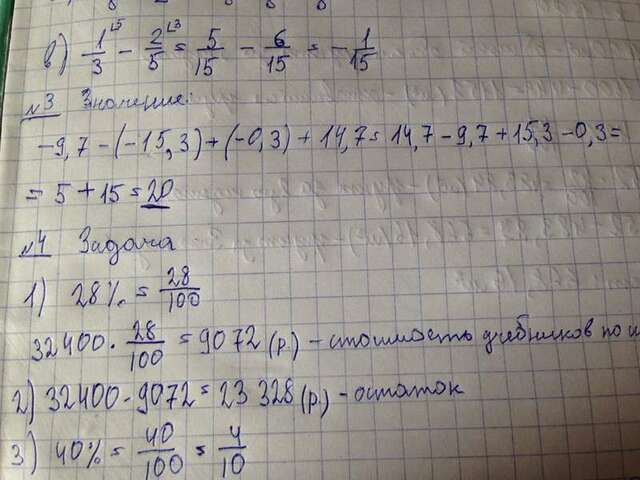 в) 1/3 - 2/5 = 5/15 - 6/15 = - 1/15
№3 Значение:
-9,7 - (-15,3) + (-0,3) + 14,7 = 14,7 - 9,7 + 15,3 - 0,3 =
= 5 + 15 = 20
№4 Задача
1) 28% = 28/100
32400 · 28/100 = 9072 (р.) - стоимость учебников по
2) 32400 - 9072 = 23 328 (р.) - остаток
3) 40% = 40/100 = 4/10